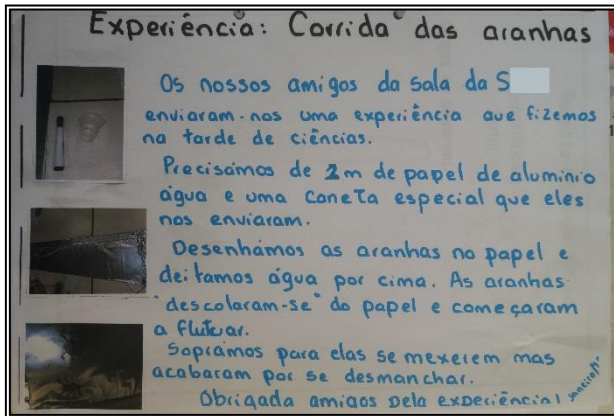 Experiência: Corrida das aranhas
Os nossos amigos da sala da S
enviaram-nos uma experiência que fizemos
na tarde de ciências.
Precisámos de 2m de papel de alumínio
água e uma caneta especial que eles
nos enviaram.
Desenhámos as aranhas no papel e
deitamos água por cima. As aranhas
"descolaram-se" do papel e começaram
a flutuar.
Soprámos para elas se mexerem mas
acabaram por se desmanchar.
Obrigada amigos pela experiência!